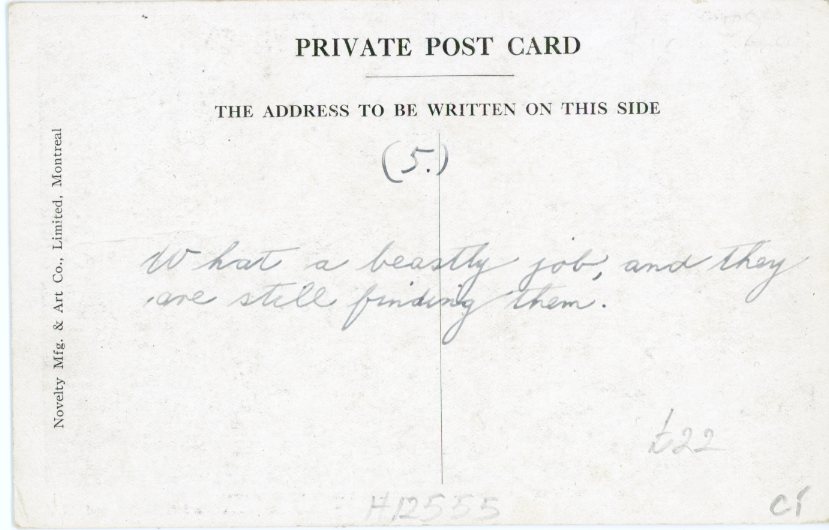 PRIVATE POST CARD
THE ADDRESS TO BE WRITTEN ON THIS SIDE
Novelty Mfg. & Art Co., Limited, Montreal
(5.)
What a beastly job, and they
are still finding them.
£22
H12555